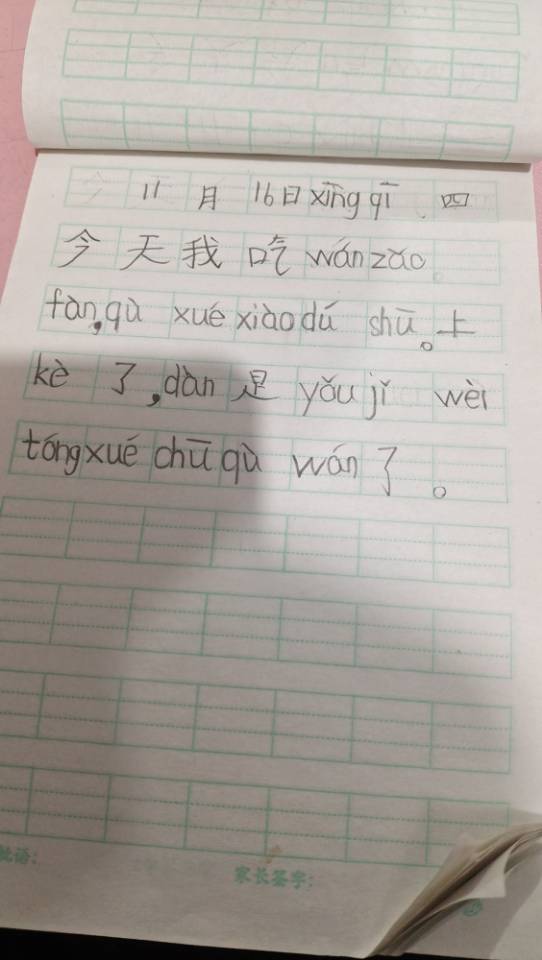 11月16日xīngqī 四
今天我吃wánzǎo
fàn,qù xué xiàodú shū。上
kè 了,dàn 是 yǒu jǐ wèi
tóngxué chū qù wán了。
批语:
家长签字: